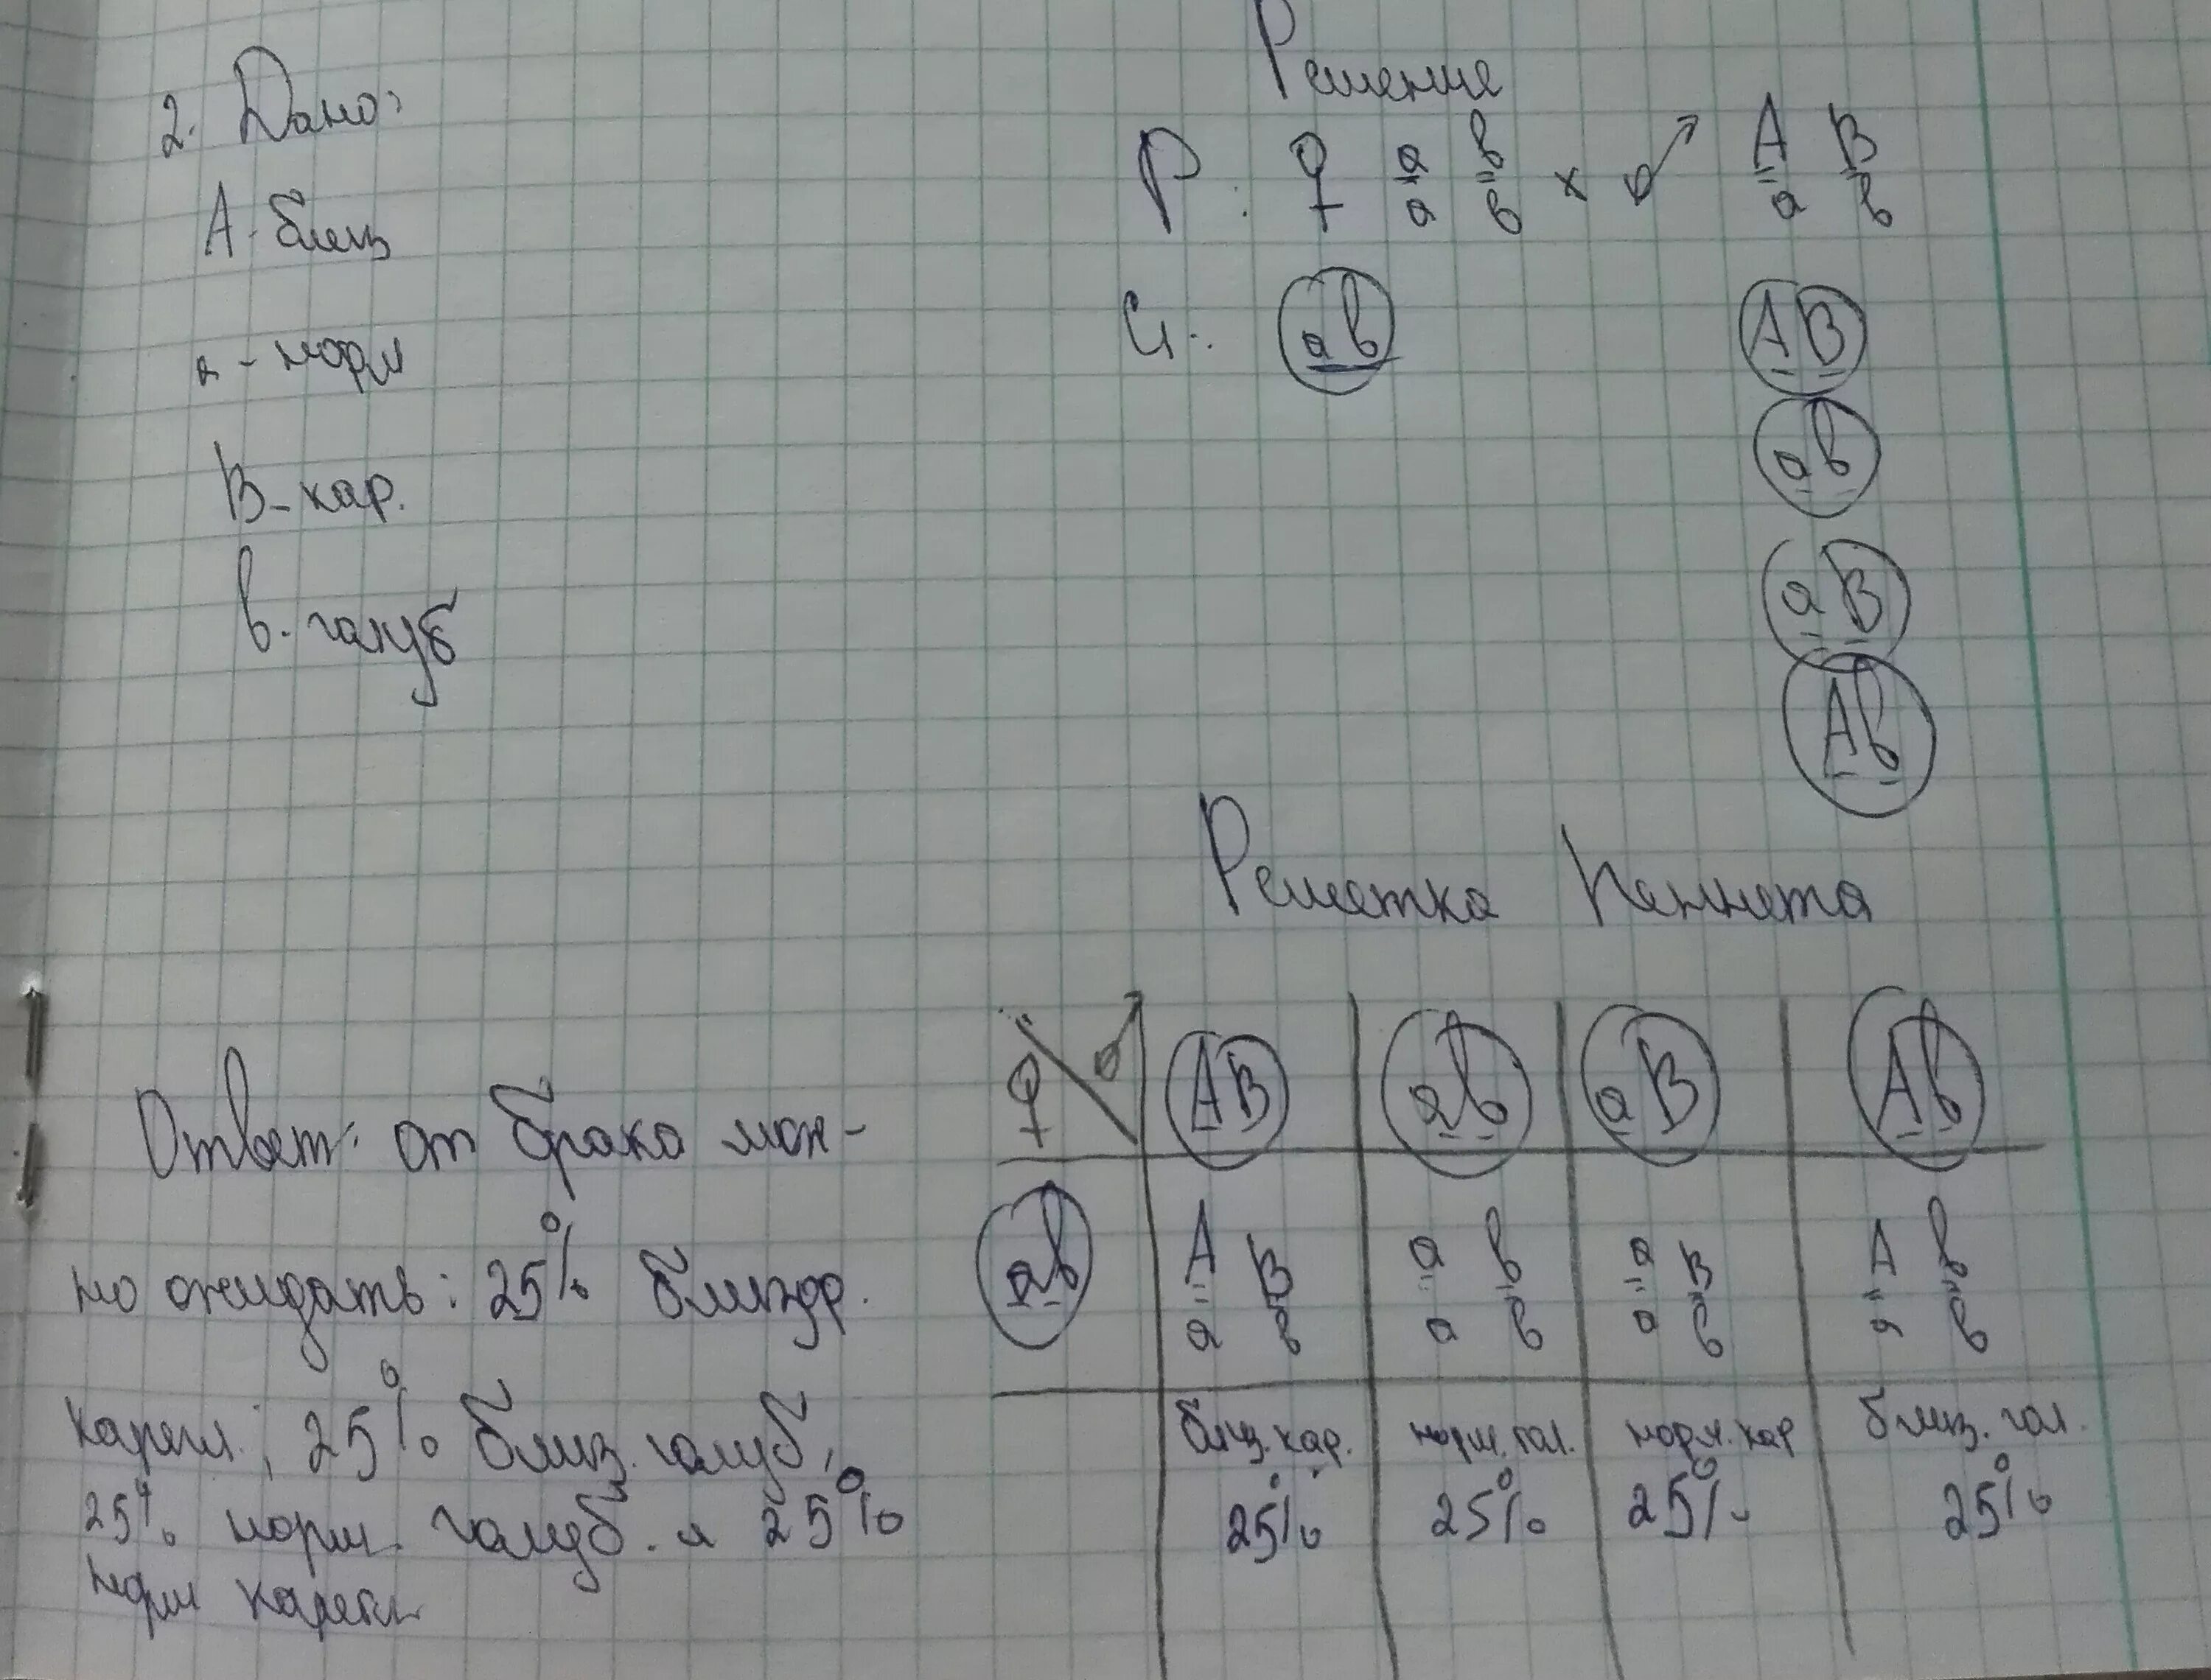 2. Дано:
А - близ
а - норм
В - кар.
в - голуб
Решение
Р: ♀ а/а в/в х ♂ А/а В/в
G: ав АВ
ав
аВ
Ав
Решетка Пеннета
♀ ♂ АВ ав аВ Ав
ав А/а В/в а/а в/в а/а В/в А/а в/в
близ. кар. норм. гол. норм. кар близ. гол.
25% 25% 25% 25%
Ответ: от брака мож-
но ожидать: 25% близор.
карегл.; 25% близ. голуб,
25% норм. голуб. и 25%
норм карегл